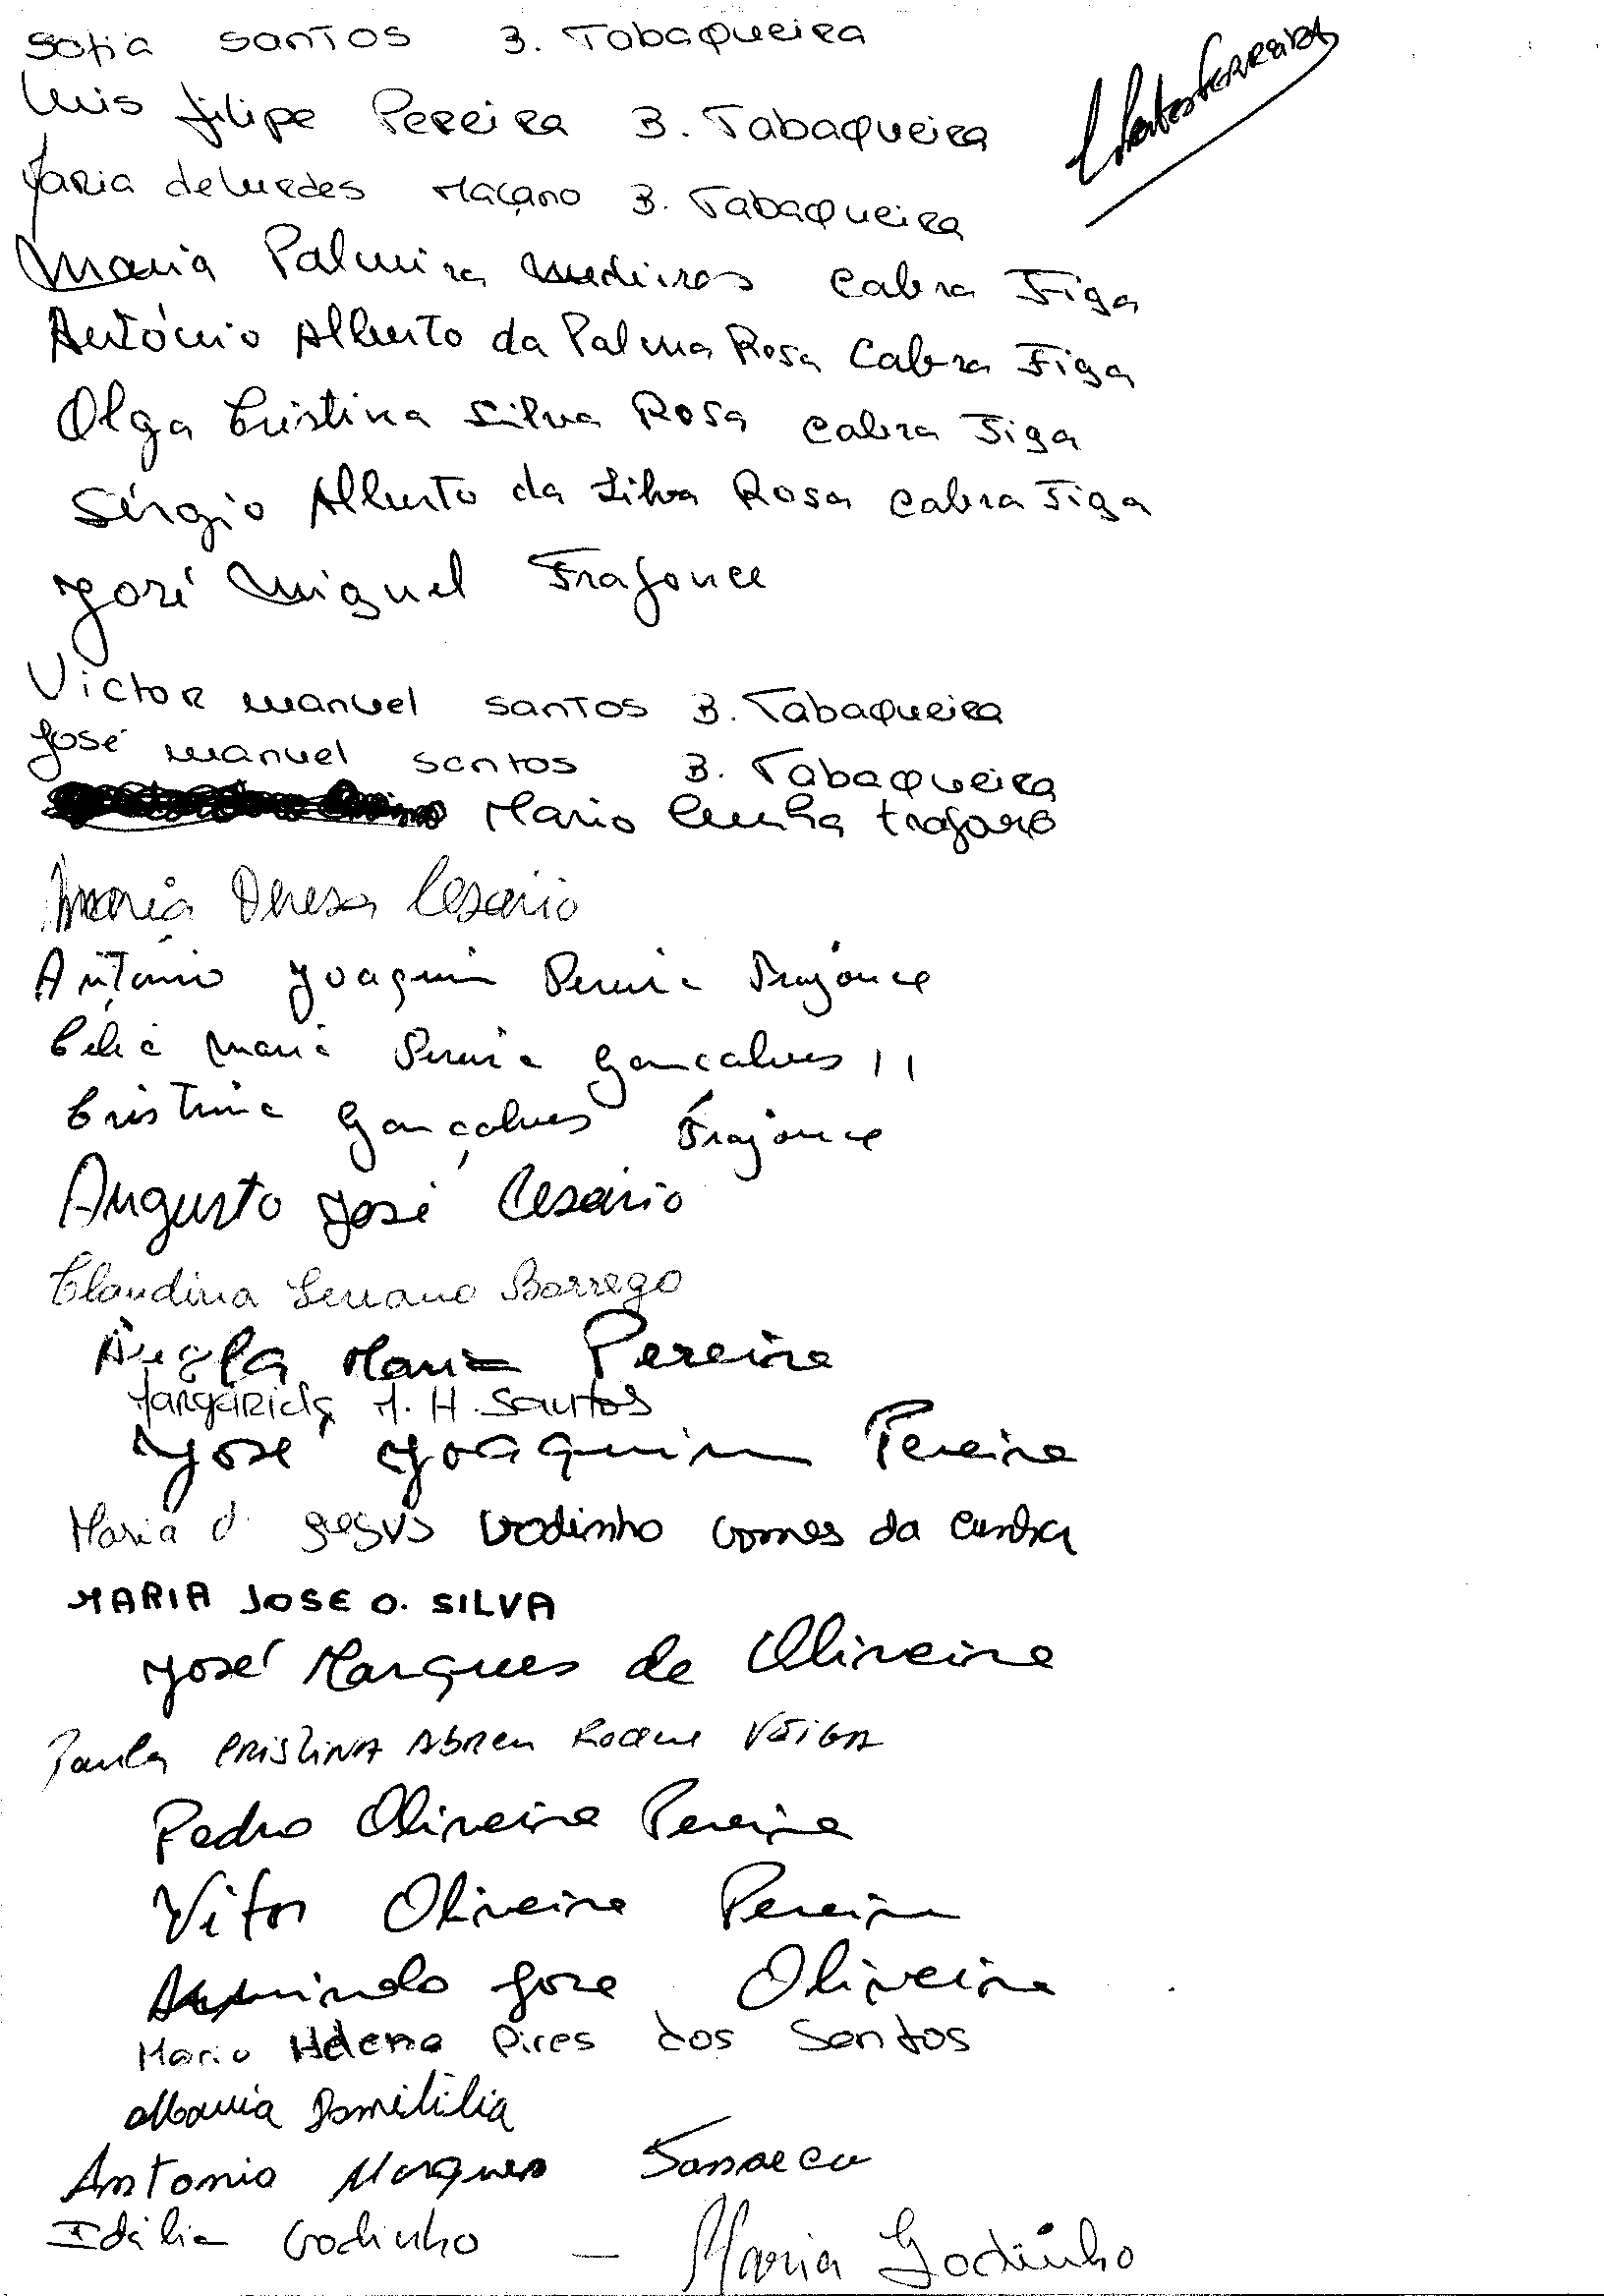 Sofia Santos B. Tabaqueira
Luis Filipe Pereira B. Tabaqueira
Maria de Lurdes Maçano B. Tabaqueira
Maria Palmira Medeiros Cabra Figa
António Alberto da Palma Rosa Cabra Figa
Olga Cristina Silva Rosa Cabra Figa
Sérgio Alberto da Silva Rosa Cabra Figa
José Miguel Frajonce
Victor Manuel Santos B. Tabaqueira
José Manuel Santos B. Tabaqueira
Mario Cunha
Maria Teresa Cesário
António Joaquim Pereira Frajonce
Célia Maria Pereira Gonçalves 11
Cristina Gonçalves Frajonce
Augusto José Cesário
Claudina Serrano Borrego
Ângela Maria Pereira
Margarida M. H. Santos
José Joaquim Pereira
Maria d. Jesus Godinho Gomes da Cunha
MARIA JOSE O. SILVA
José Marques de Oliveira
Paula Cristina Abreu Roque Veiga
Pedro Oliveira Pereira
Vitor Oliveira Pereira
Armindo Jose Oliveira
Maria Helena Pires dos Santos
Maria Domitilia
Antonio Marques Fonseca
Idália Godinho — Maria Godinho